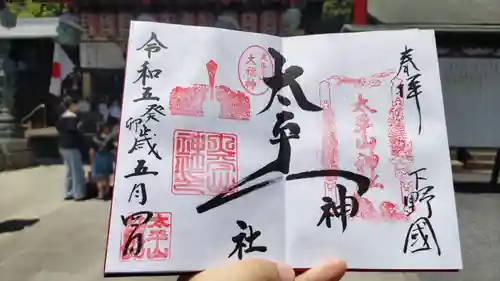 奉拝
下野國
太平山神社
令和五癸卯歳五月四日
太平山
大福神
太平山
神社
太平山